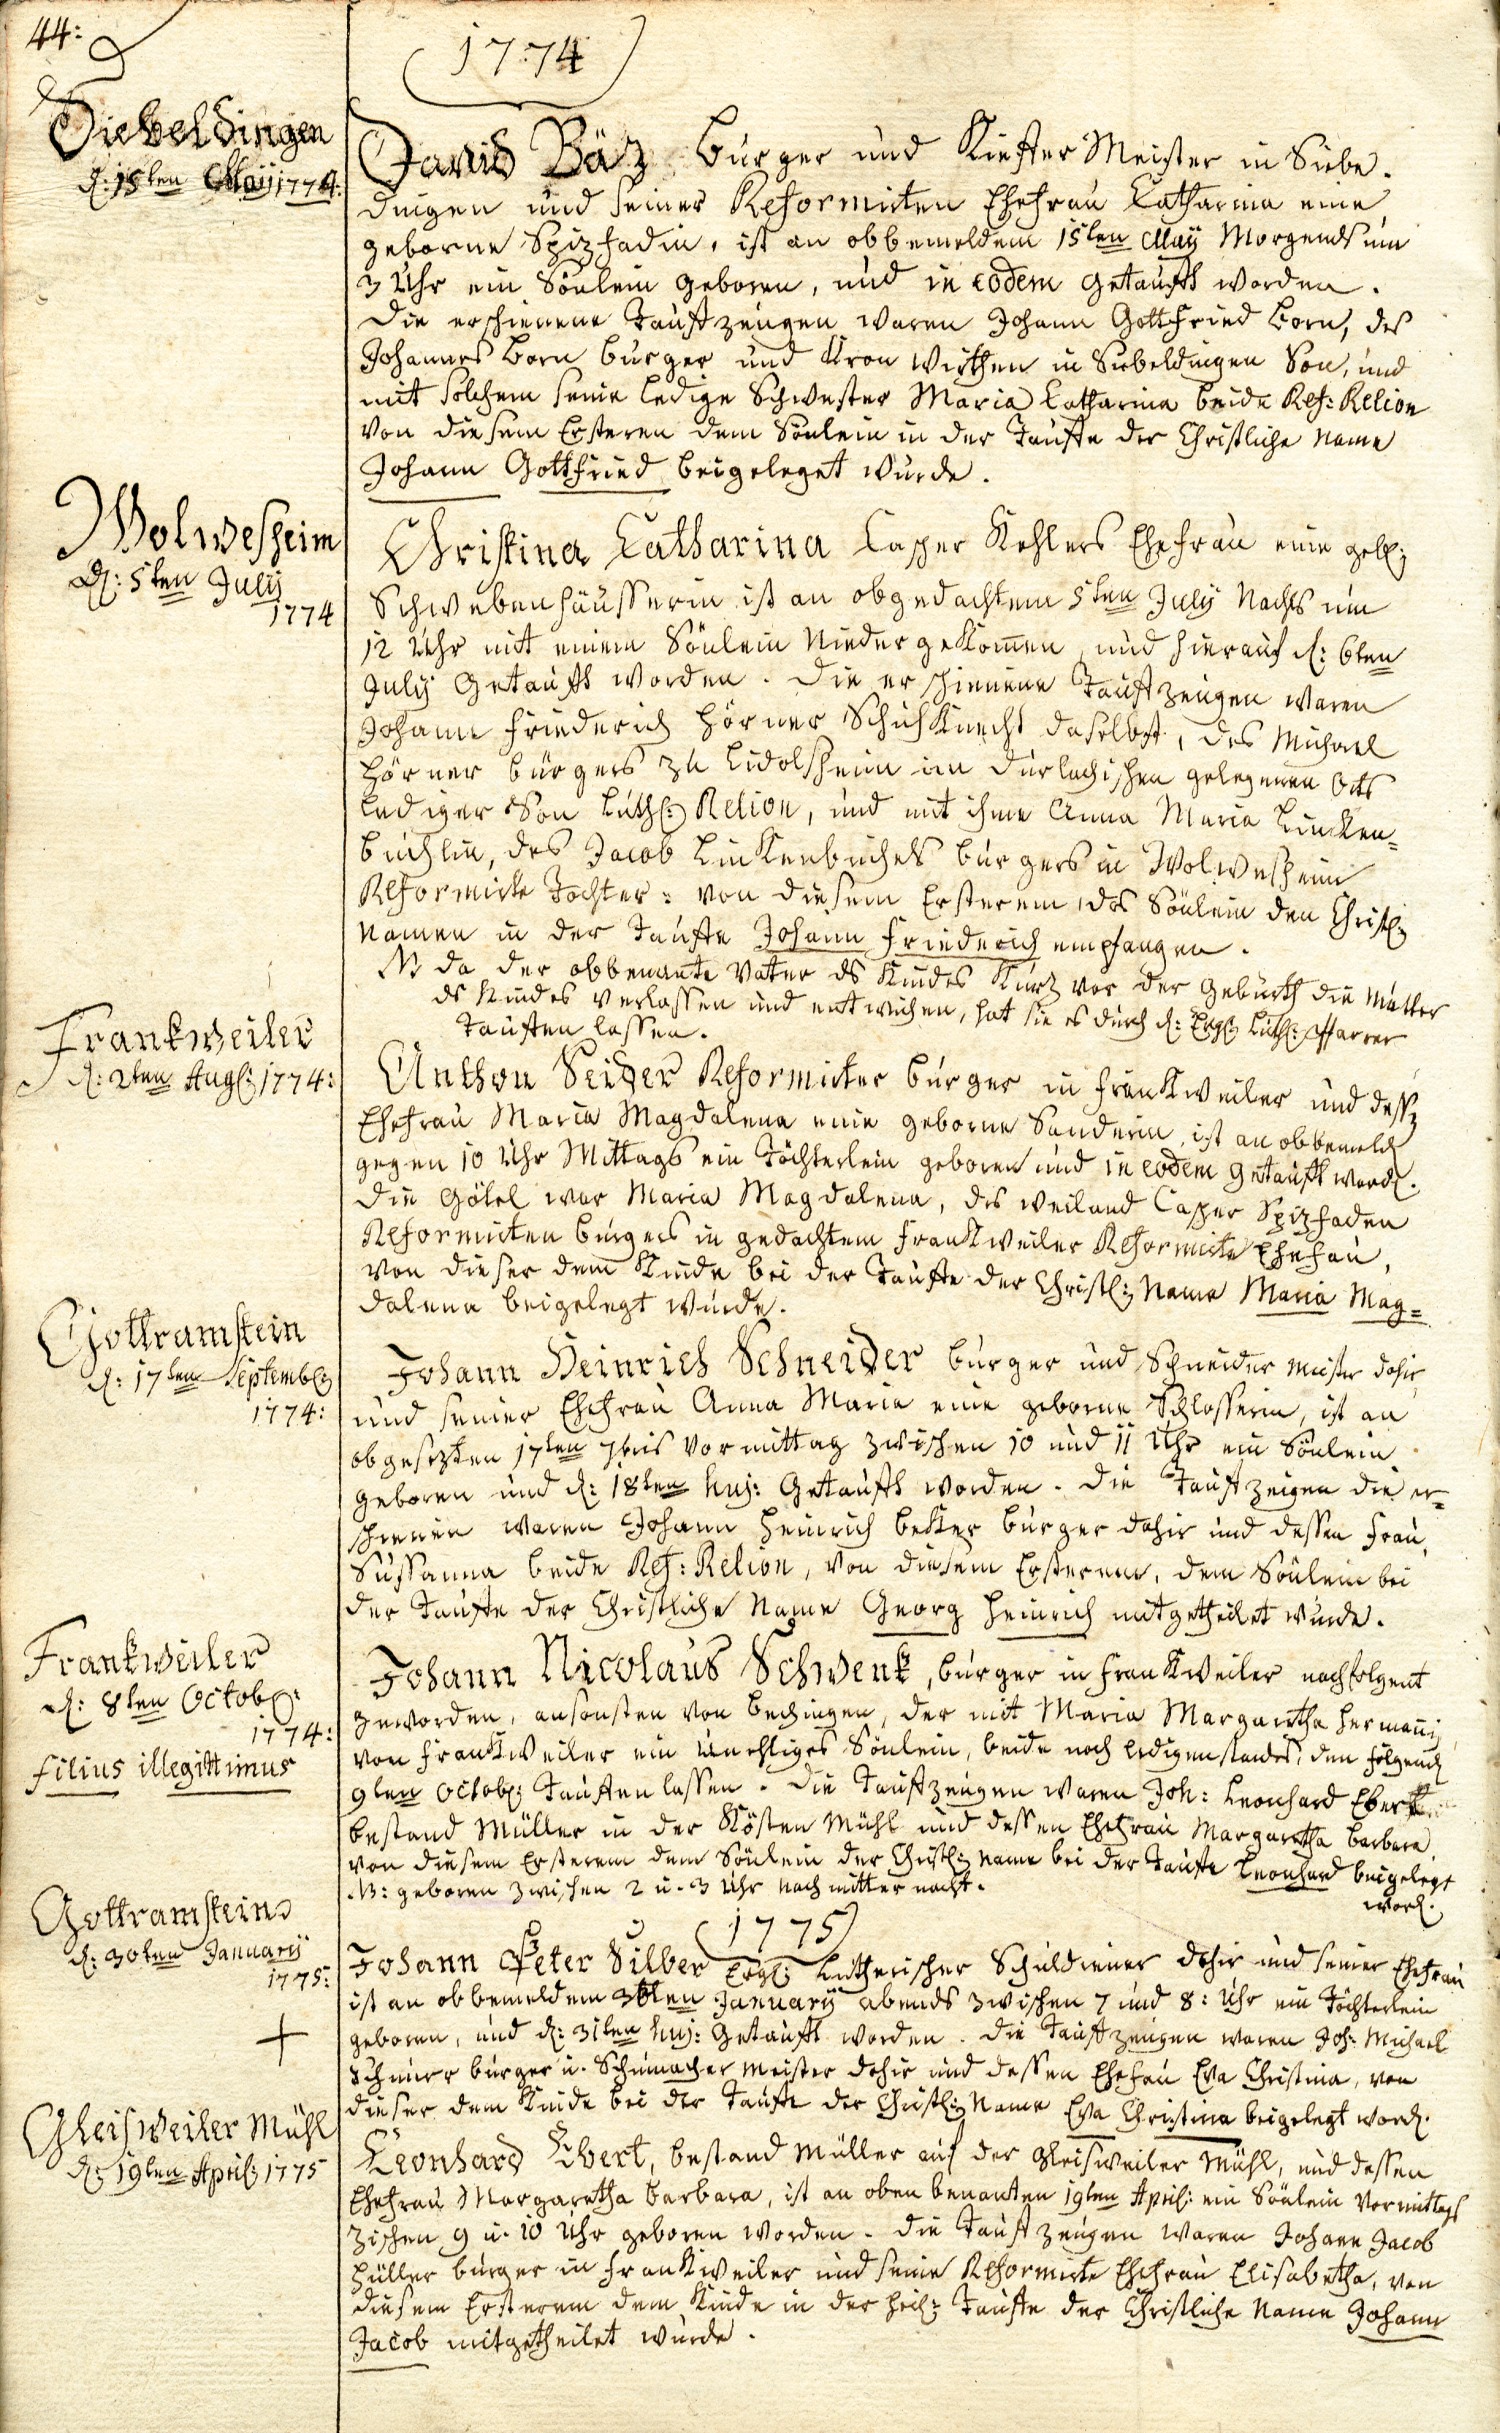 44:
1774
Siebeldingen
d: 15ten Maij 1774:
David Bäz Burger und Kieffer Meister in Siebe-
dingen und seiner Reformirten Ehefrau Catharina eine
geborne Spizfadin, ist an obbemeldem 15ten Maij Morgends um
3 Uhr ein Sönlein geboren, und in eodem getaufft worden.
Die erschienene Tauffzeugen waren Johann Gottfried Born, des
Johannes Born Burger und Kron Wirthen in Siebeldingen Son, und
mit solchem seine ledige Schwester Maria Catharina beide Ref: Relion
von diesem Ersteren dem Sönlein in der Tauffe der Christliche Name
Johann Gottfried beigeleget wurde.
Wolmesheim
d: 5ten Julij
1774
Christina Catharina Casper Kehlers Ehefrau eine geb:
Schwebenhäusserin ist an obgedachtem 5ten Julij Nachts um
12 Uhr mit einem Sönlein Niedergekomen, und hierauf d: 6ten
Julij Getaufft worden. Die erschienene Tauffzeugen waren
Johann Friederich Hörner Schuhknecht daselbst, des Michael
Hörner Burgers zu Lidolsheim im Durlachischen gelegenen Orts
lediger Son Luth: Relion, und mit ihme Anna Maria Lincken-
buchlin, des Jacob Linkenbuchels Burgers in Wolmesheim
Reformirte Tochter: von diesem Ersterem das Sönlein den Christ:
Namen in der Tauffe Johann Friederich empfangen.
NB da der obbenante Vater ds Kindes Kurz vor der Geburth die Mutter
ds Kindes verlassen und entwichen, hat sie es durch d: Evgl: Luth: Pfarrer
Tauffen lassen.
Frankweiler
d: 2ten Aug: 1774:
Anthon Seider Reformirter Burger in Frankweiler und dess:
Ehefrau Maria Magdalena eine geborne Sanderin, ist an obbemeld:
gegen 10 Uhr Mittags ein Töchterlein geboren und in eodem getaufft word:
Die Götel war Maria Magdalena, des weiland Casper Spizfaden
Reformirten Burgers in gedachtem Frankweiler Reformirte Ehefrau,
von dieser dem Kinde bei der Tauffe der Christl: Name Maria Mag=
dalena beigelegt wurde.
Gottramstein
d: 17ten Septemb:
1774:
Johann Heinrich Schneider Burger und Schneider Meister dahir,
und seiner Ehefrau Anna Maria eine geborne Schlosserin, ist an
obgesezten 17ten 7bris Vormittag zwischen 10 und 11 Uhr ein Sönlein
geboren und d: 18ten huj: Getaufft worden. Die Tauffzeigen die er=
schienen waren Johann Heinrich Becker Burger dahir und dessen Frau,
Sussanna beide Ref: Relion, von diesem Ersterem, dem Sönlein bei
der Tauffe der Christliche Name Georg Heinrich mitgetheilet wurde.
Frankweiler
d: 8ten Octob:
1774:
filius illegittimus
Johann Nicolaus Schwenk, burger in Frankweiler nachfolgent
geworden, ansonsten von Bechingen, der mit Maria Margaretha Hermanni
von Frankweiler ein Unehliges Sönlein, beide noch ledigen standes, den folgend
9ten Octob: Tauffen lassen. Die Tauffzeugen waren Joh: Leonhard Ebert
bestand Müller in der Kösten Mühl und dessen Ehefrau Margaretha Barbara
von diesem Ersterem dem Sönlein der Christl: Name bei der Tauffe Leonhard beigelegt
word.
NB: geboren zwischen 2 u. 3 Uhr nach mitter nacht.
1775
Gottramstein
d: 30ten Januarij
1775:
Johann Peter Silber Evgl: Lutherischer Schuldiener dahir und seiner Ehefrau
ist an obbemeldem 30ten Januarij abends zwischen 7 und 8: Uhr ein Töchterlein
geboren, und d: 31ten huj: Getaufft worden. Die Tauffzeugen waren Joh: Michael
Schnurr burger u. Schumacher Meister dahir und dessen Ehefrau Eva Christina, von
dieser dem Kinde bei der Tauffe der Christl: Name Eva Christina beigelegt word.
Gleisweiler Mühl
d: 19ten April: 1775
Leonhard Ebert, bestand Müller auf der Gleisweiler Mühl, und dessen
Ehefrau Margaretha Barbara, ist an oben benanten 19ten April: ein Sönlein Vormittags
zischen 9 u. 10 Uhr geboren worden. Die Tauffzeugen waren Johann Jacob
Hüller burger in Frankweiler und seine Reformirte Ehefrau Elisabetha, von
diesem Ersterem dem Kinde in der heil: Tauffe der Christliche Name Johann
Jacob mitgetheilet wurde.